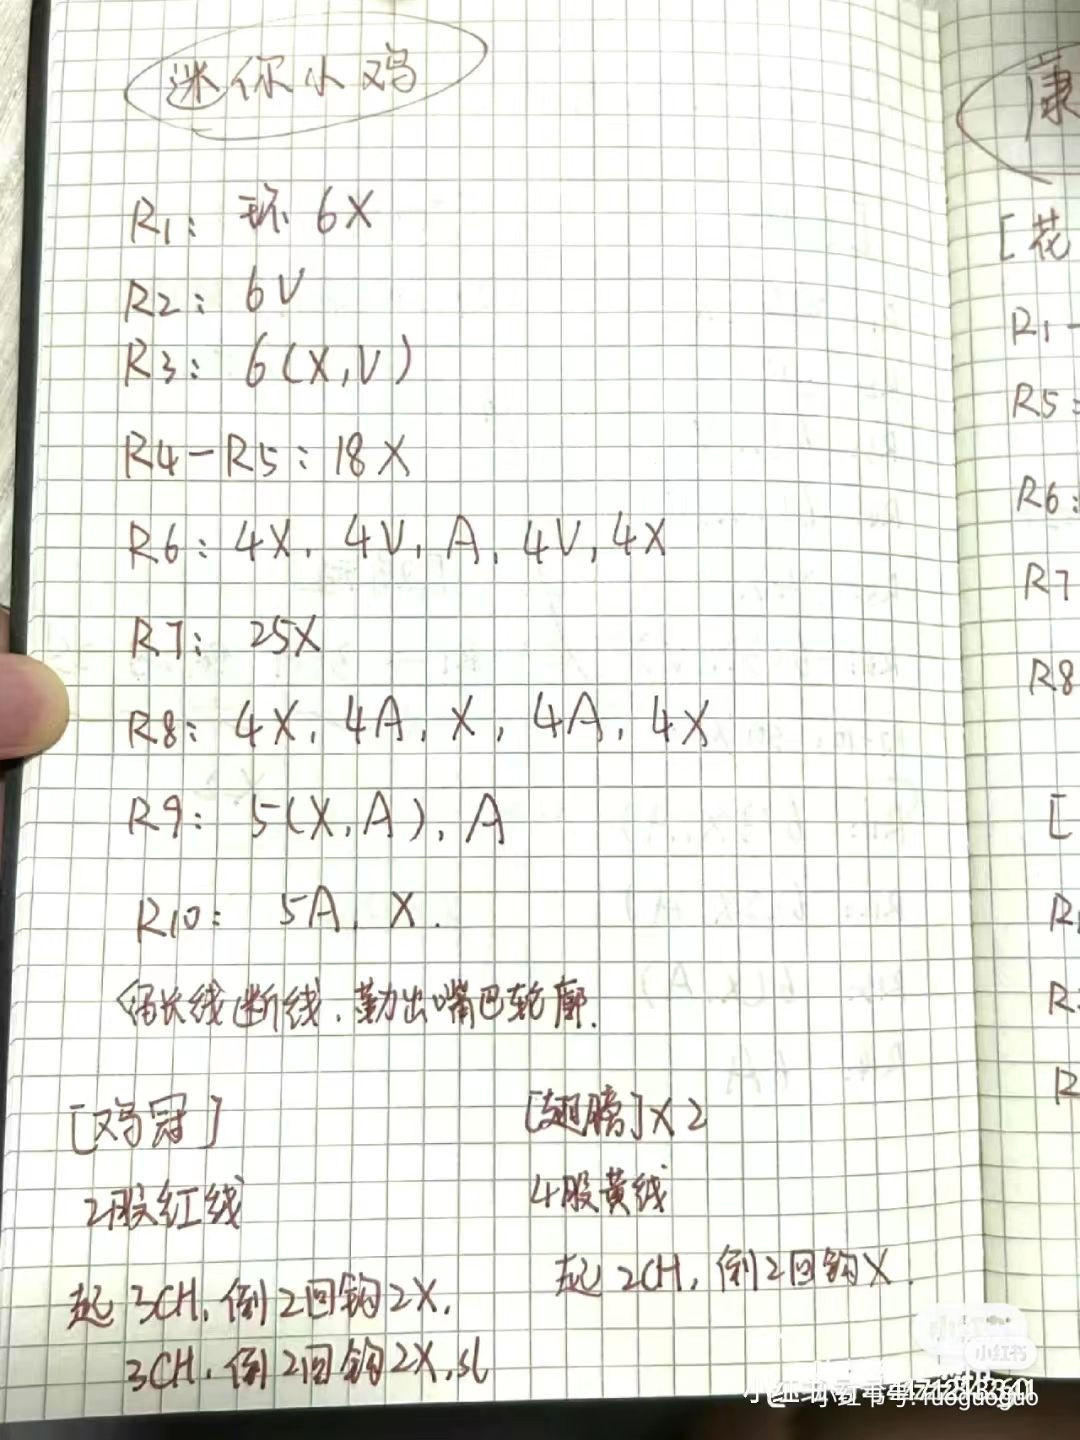 迷你小鸡
R1: 环 6X
R2: 6V
R3: 6(X,V)
R4-R5: 18X
R6: 4X, 4V, A, 4V, 4X
R7: 25X
R8: 4X, 4A, X, 4A, 4X
R9: 5(X,A), A
R10: 5A, X.
留长线断线,勒出嘴巴轮廓.
[鸡冠]
2股红线
起3CH,倒2回钩2X,
3CH,倒2回钩2X,sl
[翅膀]X2
4股黄线
起2CH,倒2回钩X.
康
[花
R1-
R5:
R6:
R7
R8
[
R
R
小红书